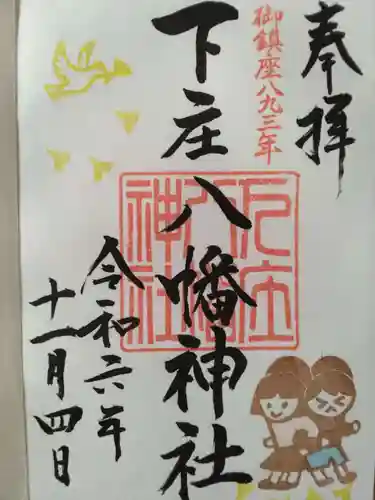 奉拝
御鎮座八九三年
下庄八幡神社
下庄八幡神社
令和六年
十一月四日